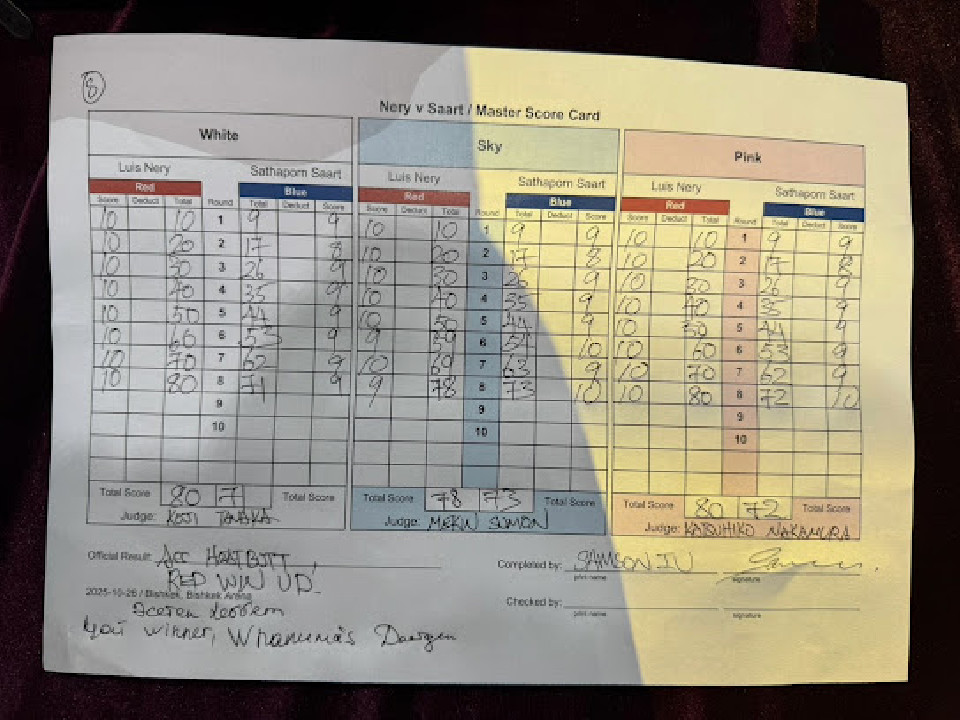 8
Nery v Saart / Master Score Card
White Sky Pink
Luis Nery Sathaporn Saart Luis Nery Sathaporn Saart Luis Nery Sathaporn Saart
Red Blue Red Blue Red Blue
Score Deduct Total Round Total Deduct Score Score Deduct Total Round Total Deduct Score Score Deduct Total Round Total Deduct Score
10 10 1 9 9 10 10 1 9 9 10 10 1 9 9
10 20 2 17 8 10 20 2 17 8 10 20 2 17 8
10 30 3 26 9 10 30 3 26 9 10 30 3 26 9
10 40 4 35 9 10 40 4 35 9 10 40 4 35 9
10 50 5 44 9 10 50 5 44 9 10 50 5 44 9
10 60 6 53 9 6 10 10 60 6 53 9
10 70 7 62 9 10 69 7 63 9 10 70 7 62 9
10 80 8 71 9 9 78 8 73 10 10 80 8 72 10
9 9 9
10 10 10
Total Score 80 71 Total Score Total Score 78 73 Total Score Total Score 80 72 Total Score
Judge: KOJI TANAKA Judge: Judge: KATSUHIKO NAKAMURA
Official Result: Completed by: SAMSON IU
print name signature
RED WIN UD.
2025-10-26 / Bishkek, Bishkek Arena
Checked by:
print name signature
winner,